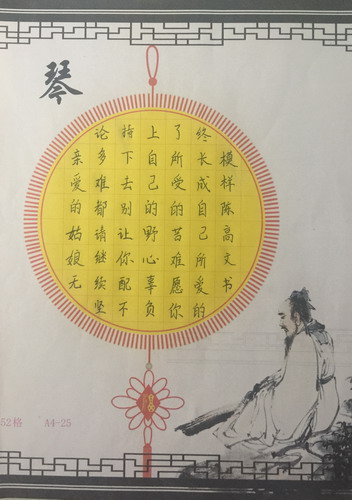 琴
亲爱的姑娘无
论多难都请继续坚
持下去别让你配不
上自己的野心辜负
了所受的苦难愿你
终长成自己所爱的
模样陈高文书
52格 A4-25